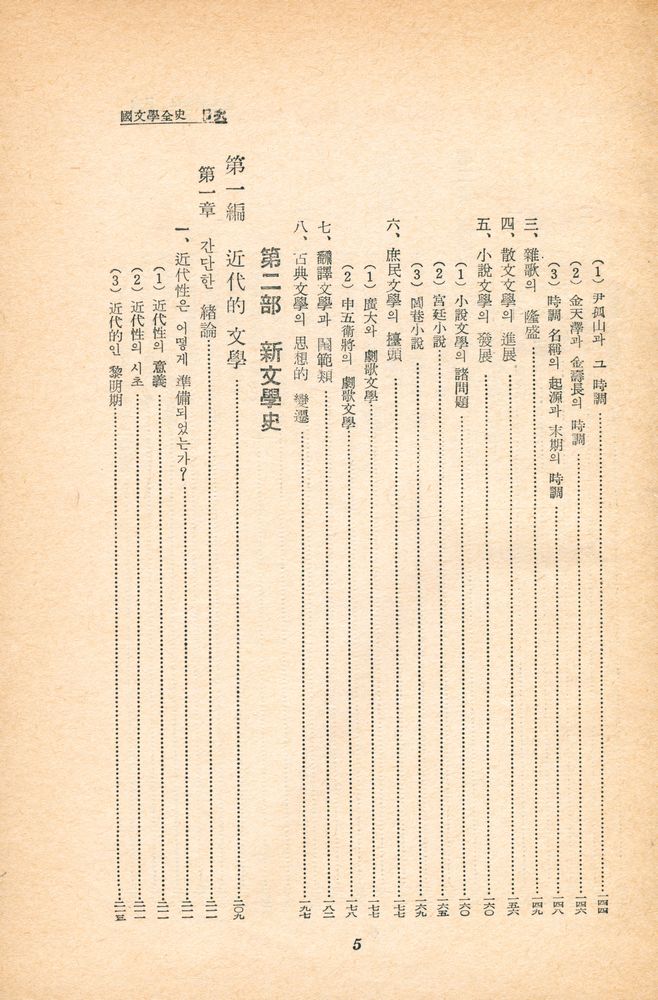 國文學全史 目次
(1) 尹孤山과 그 時調 一四四
(2) 金天澤과 金壽長의 時調 一四六
(3) 時調 名稱의 起源과 末期의 時調 一四八
三、雜歌의 隆盛 一四九
四、散文文學의 進展 一五六
五、小說文學의 發展 一六〇
(1) 小說文學의 諸問題 一六〇
(2) 宮廷小說 一六五
(3) 閭巷小說 一六九
六、庶民文學의 擡頭 一七七
(1) 廣大와 劇歌文學 一七七
(2) 申五衛將의 劇歌文學 一七八
七、飜譯文學과 閨範類 一八二
八、古典文學의 思想的 變遷 一九七
第二部 新文學史
第一編 近代的 文學 二〇九
第一章 간단한 緖論 二一一
一、近代性은 어떻게 準備되었는가? 二一一
(1) 近代性의 意義 二一一
(2) 近代性의 시초 二一一
(3) 近代的인 黎明期 二一五
5